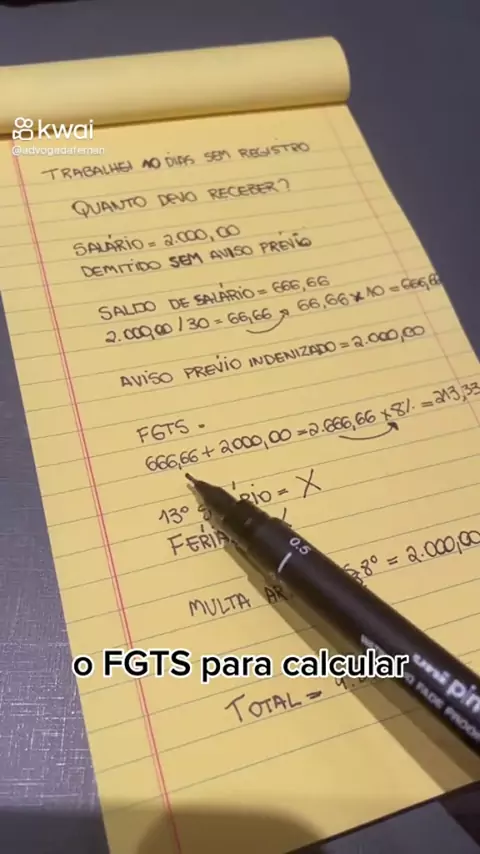 kwai
@advogadafernan
TRABALHEI 10 DIAS SEM REGISTRO
QUANTO DEVO RECEBER?
SALÁRIO = 2.000,00
DEMITIDO SEM AVISO PRÉVIO
SALDO DE SALÁRIO = 666,66
2.000,00/30 = 66,66 66,66 x 10 = 666,66
AVISO PRÉVIO INDENIZADO = 2.000,00
FGTS.
666,66 + 2000,00 = 2.666,66 x 8% = 213,33
13° = X
FÉRIA
MULTA AR 8° = 2.000,00
o FGTS para calcular
TOTAL =
0.5
uni pin